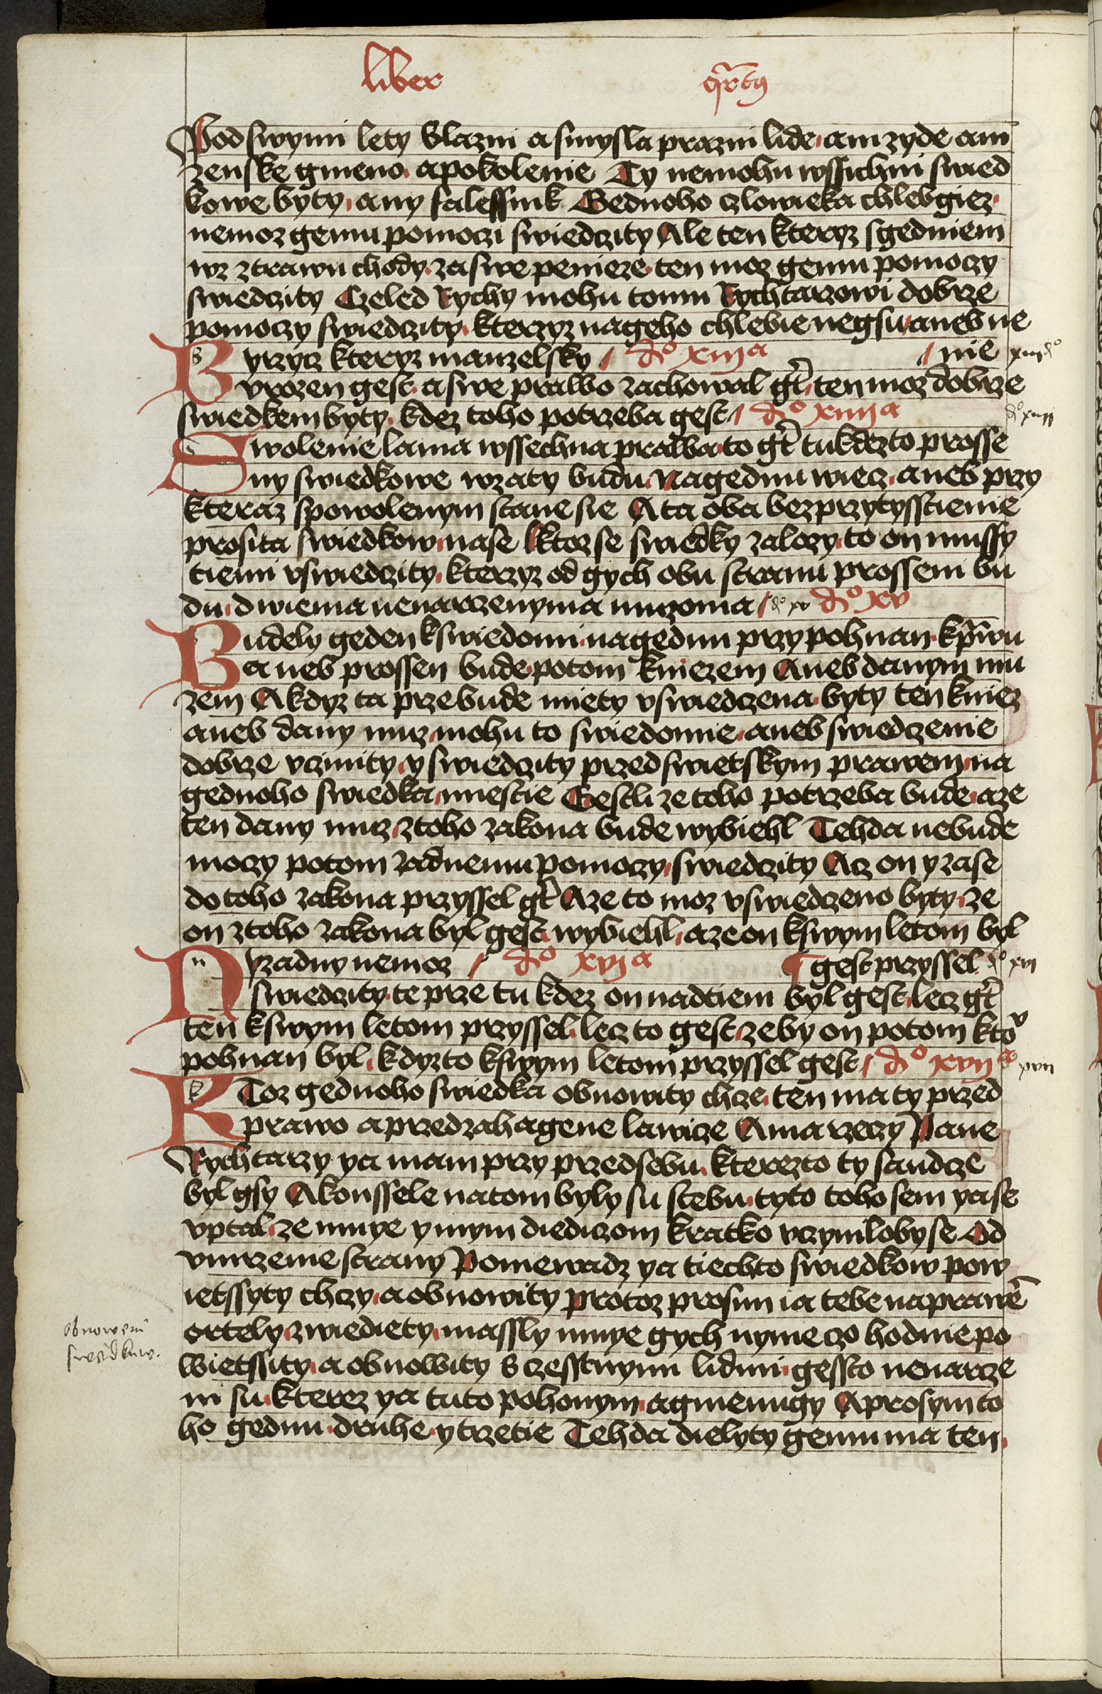 liber qrtus
Pod swymi lety blazni a smysla prazni lide, ani zyde ani
zenske gmeno, a pokolenie Ty nemohu wssichni swied
kowe byty, any falessnik Gednoho czlowieka chleb giez
nemoz gemu pomoczi swiedczity Ale ten kteryz s gedniem
wz ztrawu chody, za swe penieze, ten moz gemu pomoczy
swiedczity Czeled Rychy mohu tomu Rychtarzowi dobrze
pomoczy swiedczity, kterzyz na geho chlebie negsu, aneb ne
B yrzycz kteryz manzelsky do xiiia nie xiiido
vrozen gest, a swe prawo zachowal gt, ten moz dobrze
swiedkem byty, kdez toho potrzeba gest do xiiiia do xiiii
S wolenie lama wssechna prawa, to gt tu kdezto prosse
ny swiedkowe wzaty budu Na gednu wiecz, aneb przy
kteraz s powolenym stane sie A ta oba bez przytysstienie
prosita swiedkow, na se Ktoz se swiedky zalozy, to on mussy
tiemi vswiedczity, kterzyz od gych obu stranu prosseni bu
du, dwiema nenarzenyma muzoma do xv do xv
B udely geden k swiedomi, na gednu przy pohnan, k prwu
aneb prossen bude, potom kniezem Aneb danym mu
zem A kdyz ta prze bude miety vswiedczena byty ten kniez
aneb dany muz, mohu to swiedomie, aneb swiedczenie
dobrze vcziniti, y swiedczity przed swietskym prawem, na
gednoho swiedka, miestie Gestli ze toho potrzeba bude, a ze
ten dany muz, z toho zakona bude wybiehl Tehda nebude
moczy potom zadnemu pomoczy, swiedczity Acz on y zase
do toho zakona przyssel gt A ze to moz vswiedczeno byty, ze
on z toho zakona byl gest, wybiehl, a ze on k swym letom byl
N yzadny nemoz do xvia gest przyssel do xvi
swiedczity, te prze tu kdez on nad tiem byl gest, lecz gt
ten k swym letom przyssel, lecz to gest, ze by on potom k tov
pohnan byl, kdyzto k swym letom przyssel gest do xviia xvii
K Toz gednoho swiedka obnowity chcze, ten ma ty przed
prawo a przed zahagene lawicze A ma rzeczy Pane
Rychtarzy ya mam przy przed sebu, kterezto ty saudcze
byl gsy A konssele na tom byly su s tebu, tyto toho sem ya se
vptal, ze mnye y mym diediczom kratko vczynilo by se Od
vmrzenie strany Poniewadz ya tiechto swiedkow pow
ietssyty chczy, a obnowity protoz prosim ia tebe na prawe
ortely, zwiediety, massly mnye gych nynie czo hodnie po
wietssity, a obnowity s czesstnymi lidmi, gessto nenarcze
ni su, kterez ya tuto pohonym, a gmenugy A prosym to
ho gednu, druhe, y trzetie Tehda dielyty gemu ma ten
obnoweni
swiedkuw.